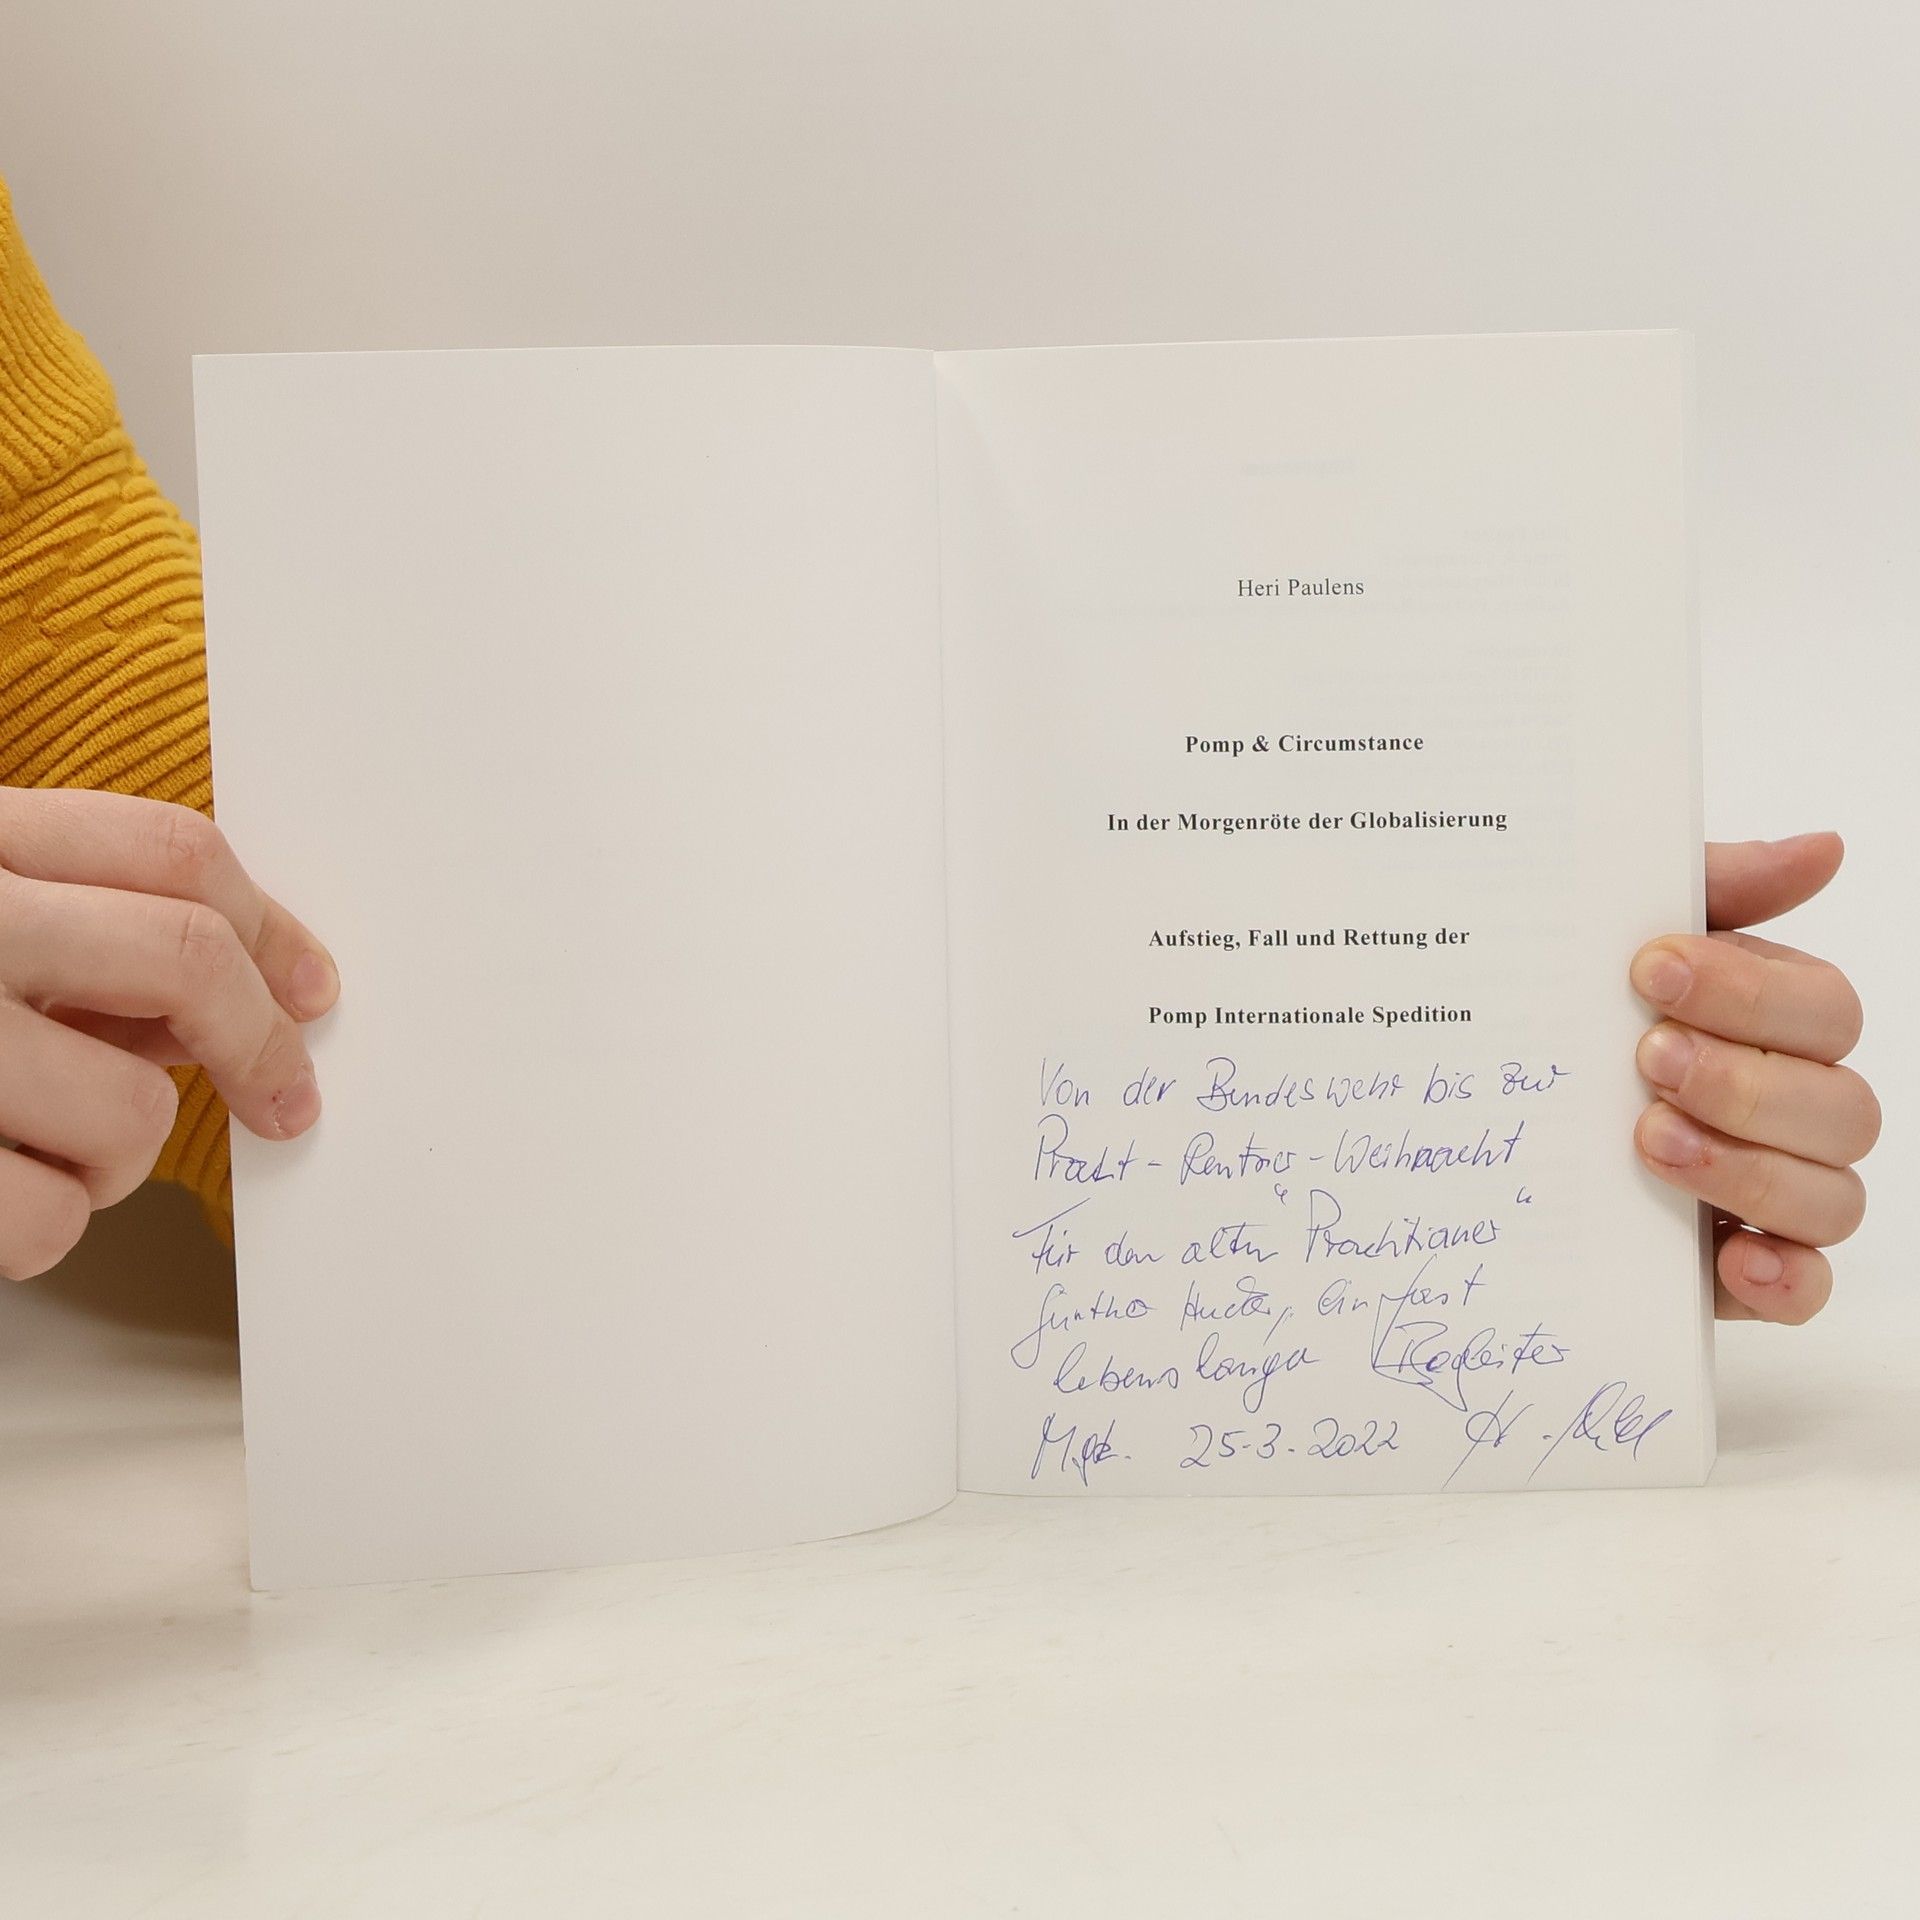 Heri Paulens
Pomp & Circumstance
In der Morgenröte der Globalisierung
Aufstieg, Fall und Rettung der
Pomp Internationale Spedition
Von der Bundeswehr bis zur
Pracht-Rentner-Weihnacht
Für den alten "Prachtianer"
Günther ein fast
lebenslanger Begleiter
25-3-2022 H.